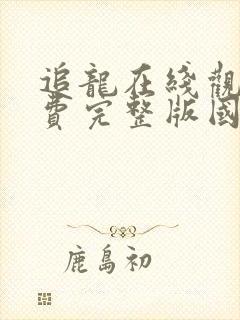 追龍在綫觀
費完整版國
鹿島初